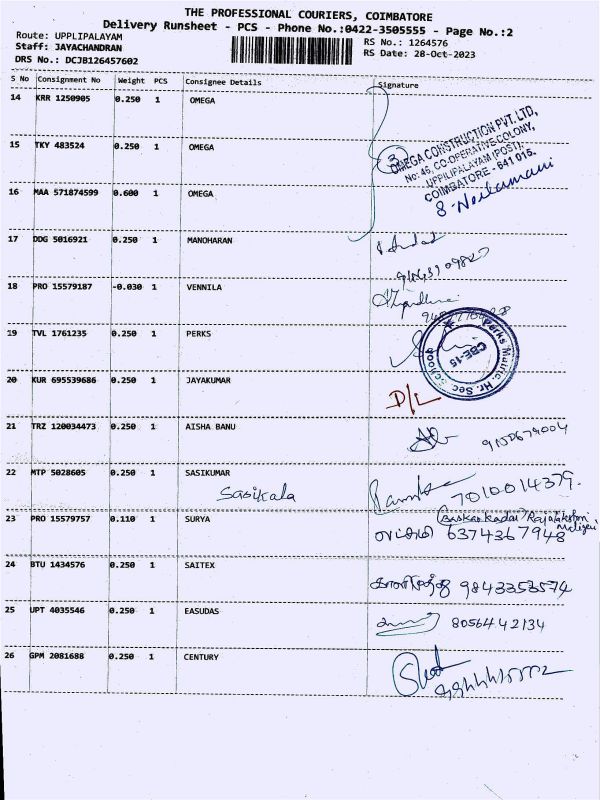 THE PROFESSIONAL COURIERS, COIMBATORE
Delivery Runsheet - PCS - Phone No.:0422-3505555 - Page No.:2
Route: UPPLIPALAYAM
Staff: JAYACHANDRAN
DRS No.: DCJB126457602
RS No.: 1264576
RS Date: 28-Oct-2023
S No Consignment No Weight PCS Consignee Details Signature
14 KRR 1250905 0.250 1 OMEGA
15 TKY 483524 0.250 1 OMEGA
3
OMEGA CONSTRUCTION PVT. LTD,
No: 46, CO-OPERATIVE COLONY,
UPPILIPALAYAM (POST),
COIMBATORE - 641 015.
16 MAA 571874599 0.600 1 OMEGA
17 DDG 5016921 0.250 1 MANOHARAN
18 PRO 15579187 -0.030 1 VENNILA
19 TVL 1761235 0.250 1 PERKS
Perks Matric. Hr. Sec. School
CBE-15
20 KUR 695539686 0.250 1 JAYAKUMAR D/L
21 TRZ 120034473 0.250 1 AISHA BANU 9150679004
22 MTP 5028605 0.250 1 SASIKUMAR
Sasikala 7010014379.
23 PRO 15579757 0.110 1 SURYA
6374367948
24 BTU 1434576 0.250 1 SAITEX
9843353574
25 UPT 4035546 0.250 1 EASUDAS 8056442134
26 GPM 2081688 0.250 1 CENTURY